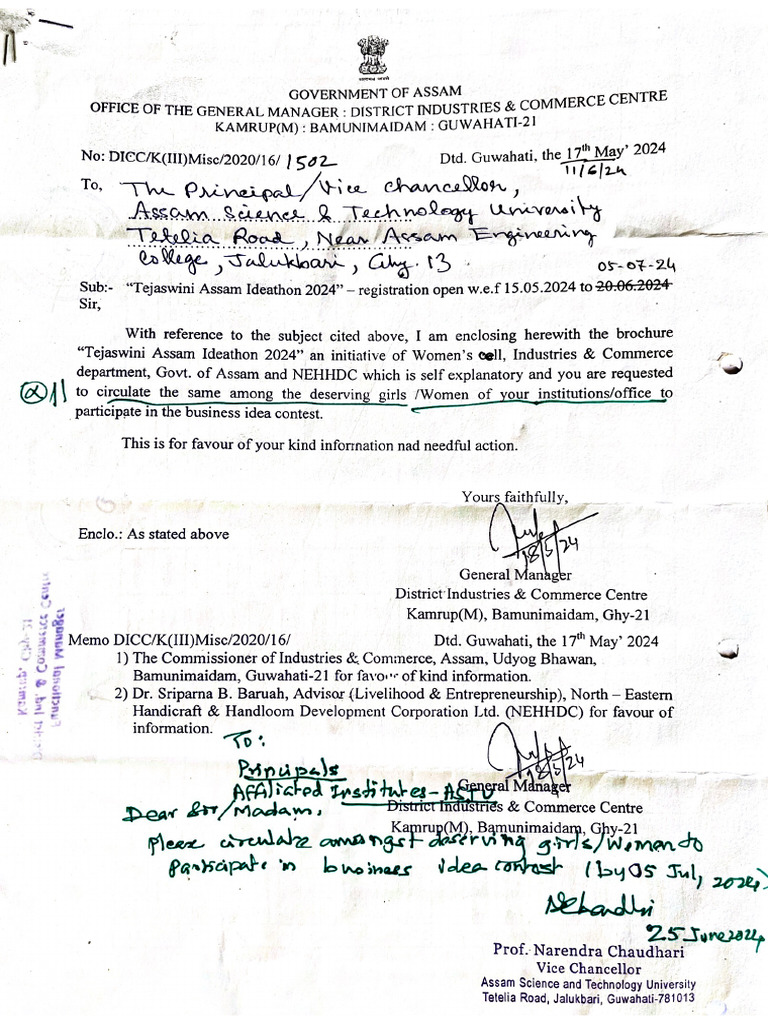 GOVERNMENT OF ASSAM
OFFICE OF THE GENERAL MANAGER : DISTRICT INDUSTRIES & COMMERCE CENTRE
KAMRUP(M) : BAMUNIMAIDAM : GUWAHATI-21
No: DICC/K(III)Misc/2020/16/ 1502
Dtd. Guwahati, the 17th May' 2024
11/6/24
To, The Principal/Vice chancellor,
Assam Science & Technology University
Tetelia Road, Near Assam Engineering
College, Jalukbari, Ghy. 13.
05-07-24
Sub:- "Tejaswini Assam Ideathon 2024" – registration open w.e.f 15.05.2024 to 20.06.2024
Sir,
With reference to the subject cited above, I am enclosing herewith the brochure
"Tejaswini Assam Ideathon 2024" an initiative of Women's cell, Industries & Commerce
department, Govt. of Assam and NEHHDC which is self explanatory and you are requested
to circulate the same among the deserving girls /Women of your institutions/office to
participate in the business idea contest.
This is for favour of your kind information nad needful action.
Yours faithfully,
18/5/24
Enclo.: As stated above
General Manager
District Industries & Commerce Centre
Kamrup(M), Bamunimaidam, Ghy-21
Memo DICC/K(III)Misc/2020/16/
Dtd. Guwahati, the 17th May' 2024
1) The Commissioner of Industries & Commerce, Assam, Udyog Bhawan,
Bamunimaidam, Guwahati-21 for favour of kind information.
2) Dr. Sriparna B. Baruah, Advisor (Livelihood & Entrepreneurship), North – Eastern
Handicraft & Handloom Development Corporation Ltd. (NEHHDC) for favour of
information.
18/5/24
General Manager
District Industries & Commerce Centre
Kamrup(M), Bamunimaidam, Ghy-21
To:
Principals
Affiliated Institutes - ASTU
Dear Sir/Madam.
Please circulate amongst deserving girls/Women to
participate in business idea contest (by 05 Jul, 2024)
25 June 2024
Prof. Narendra Chaudhari
Vice Chancellor
Assam Science and Technology University
Tetelia Road, Jalukbari, Guwahati-781013